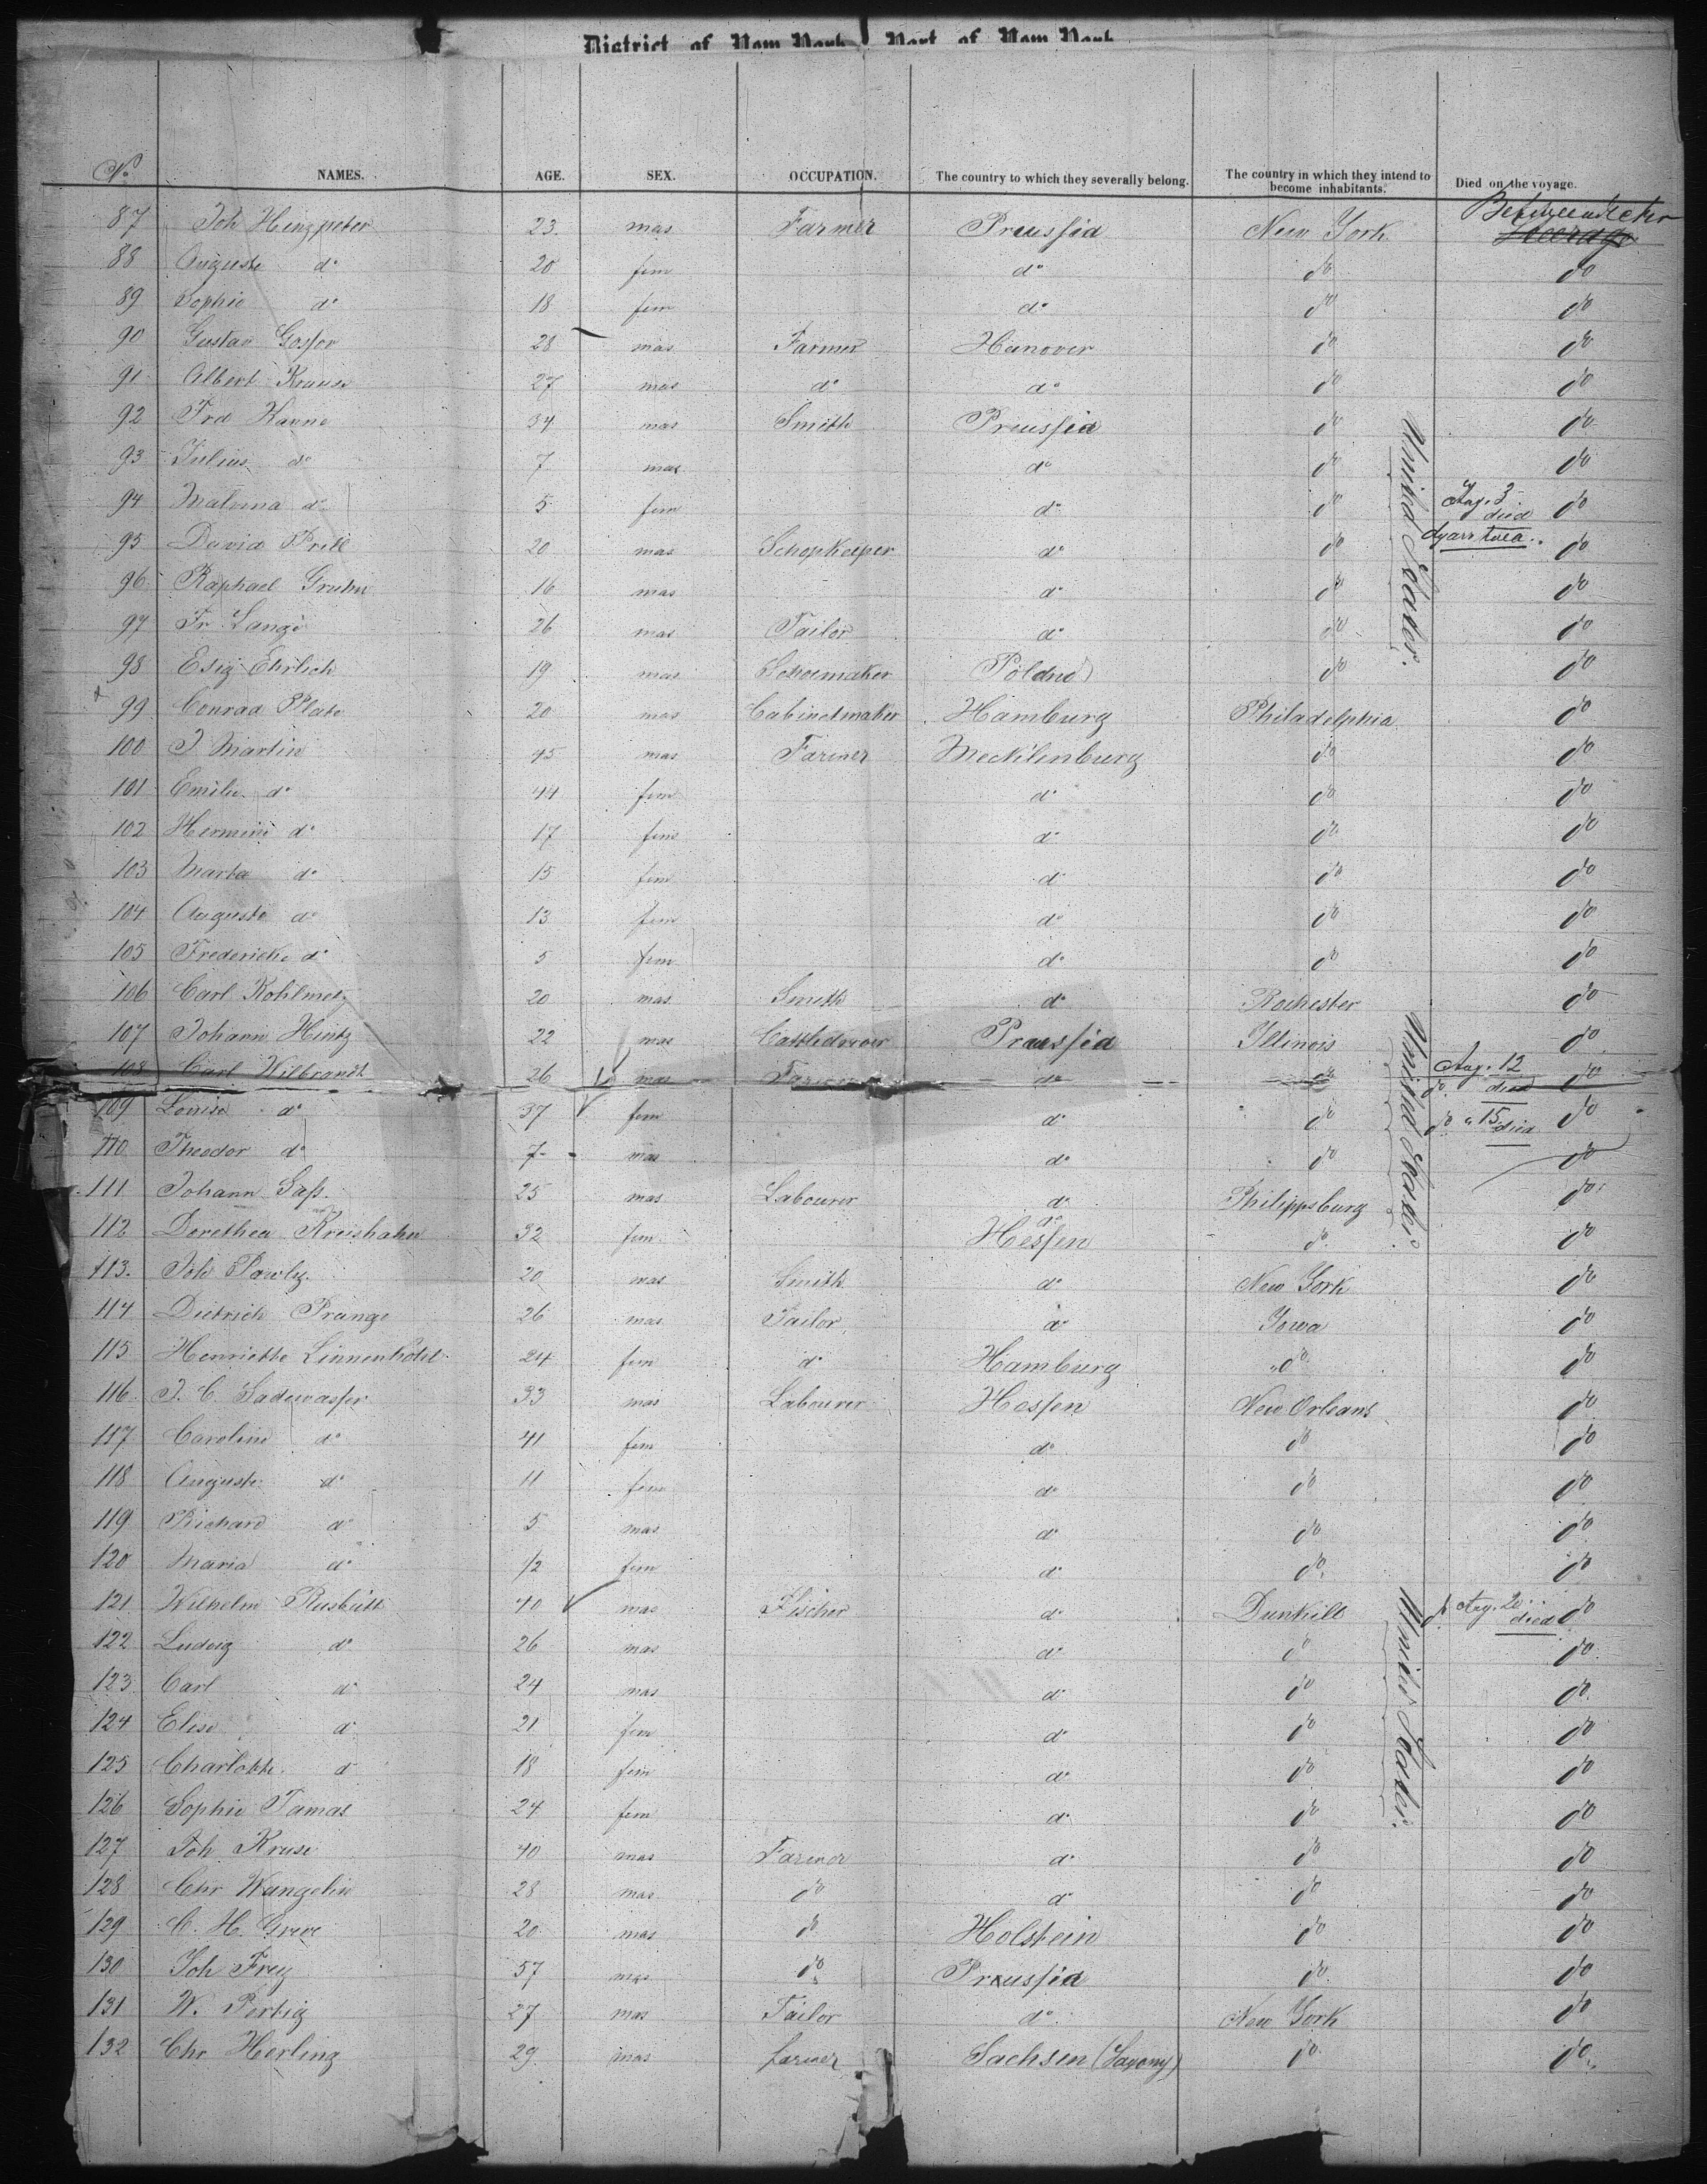 District of New York, Port of New York
No. NAMES. AGE. SEX. OCCUPATION. The country to which they severally belong. The country in which they intend to become inhabitants. Died on the voyage.
87 Joh Hinzpeter 23. mas Farmer Preussia New York Betweendeck Steerage
88 Auguste do 20 fem do do do
89 Sophie do 18 fem do do do
90 Gustav 28 mas Farmer Hanover do do
91 Albert Krause 27 mas do do do do
92 Frd Hanne 34 mas Smith Preussia do do
93 Julius do 7 mas do do do
94 Malvina do 5 fem do do Aug. 3 died dyarrhea do
95 David Prill 20 mas Schopkeeper do do do
96 Raphael Gruhn 16 mas do do do
97 Fr. Lange 26 mas Tailor do do do
98 Esig Ehrlich 19 mas Schoemaker Poland do do
99 Conrad Plate 20 mas Cabinetmaker Hamburg Philadelphia do
100 J Martin 45 mas Farmer Mecklenburg do do
101 Emilie do 44 fem do do do
102 Hermine do 17 fem do do do
103 Marta do 15 fem do do do
104 Auguste do 13 fem do do do
105 Frederieke do 5 fem do do do
106 Carl Kohlmetz 20 mas Smith do Rochester do
107 Johann Hintz 22 mas Cattledrover Preussia Illinois do
108 Carl Wilbrandt 26 mas Farmer do do Aug. 12 do died do
109 Louise do 37 fem do do do " 15 died do
110 Theodor do 7 mas do do do
111 Johann Sass 25 mas Labourer do Philippsburg do
112 Dorethea Kreishahn 32 fem do Hessen do do
113. Joh Pawly 20 mas Smith do New York do
114 Dietrich Prange 26 mas Tailor do Iowa do
115 Henriette 24 fem do Hamburg do do
116 J. C. Sadewasser 33 mas Labourer Hessen New Orleans do
117 Caroline do 41 fem do do do
118 Auguste do 11 fem do do do
119 Richard do 5 mas do do do
120 Maria do 1/2 fem do do do
121 Wilhelm Rusbült 40 mas Fischer do Dunkill do Aug. 20 died do
122 Ludwig do 26 mas do do do
123 Carl do 24 mas do do do
124 Elise do 21 fem do do do
125 Charlotte do 18 fem do do do
126 Sophie Tamas 24 fem do do do
127 Joh Kruse 40 mas Farmer do do do
128 Chr Wangelin 28 mas do do do do
129 C. H. Greve 20 mas do Holstein do do
130 Joh Frey 57 mas do Preussia do do
131 W. Pertig 27 mas Tailor do New York do
132 Chr Herling 29 mas farmer Sachsen (Saxony) do do
United States.
United States.
United States.